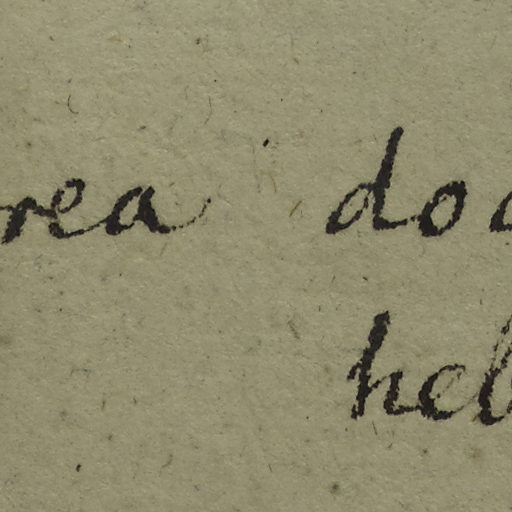 rea do
heb